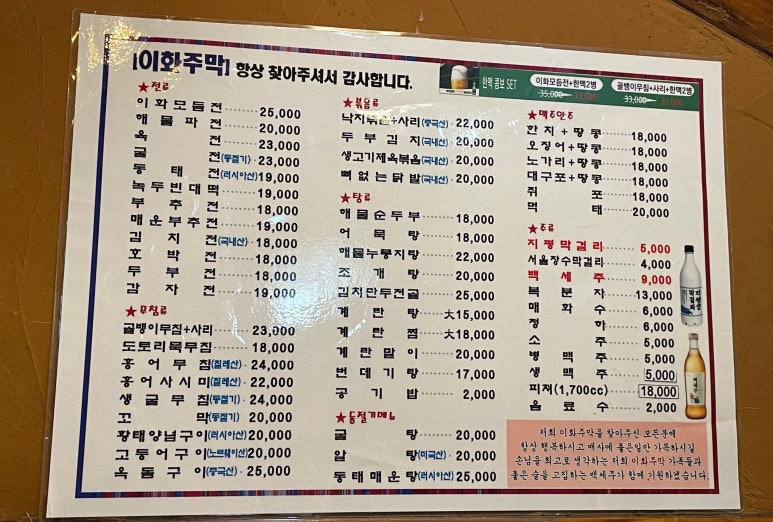 [이화주막] 항상 찾아주셔서 감사합니다.
한맥 콤보 SET
이화모듬전+한맥2병
35,000→
골뱅이무침+사리+한맥2병
33,000→
★전류
이화모듬전 25,000
해물파전 20,000
육전 23,000
굴전(동절기) 23,000
동태전(러시아산) 19,000
녹두빈대떡 19,000
부추전 18,000
매운부추전 19,000
김치전(국내산) 18,000
호박전 18,000
두부전 18,000
감자전 19,000
★무침류
골뱅이무침+사리 23,000
도토리묵무침 18,000
홍어무침(칠레산) 24,000
홍어사시미(칠레산) 22,000
생굴무침(동절기) 24,000
꼬막(동절기) 20,000
황태양념구이(러시아산) 20,000
고등어구이(노르웨이산) 20,000
옥돔구이(중국산) 25,000
★볶음류
낙지볶음+사리(중국산) 22,000
두부김치(국내산) 20,000
생고기제육볶음(국내산) 20,000
뼈없는닭발(국내산) 20,000
★탕류
해물순두부 18,000
어묵탕 18,000
해물누룽지탕 22,000
조개탕 20,000
김치만두전골 25,000
계란탕 大15,000
계란찜 大18,000
계란말이 20,000
번데기탕 17,000
공기밥 2,000
★동절기메뉴
굴탕 20,000
알탕(미국산) 20,000
동태매운탕(러시아산) 25,000
★맥주안주
한치+땅콩 18,000
오징어+땅콩 18,000
노가리+땅콩 18,000
대구포+땅콩 18,000
쥐포 18,000
먹태 20,000
★주류
지평막걸리 5,000
서울장수막걸리 4,000
백세주 9,000
복분자 13,000
매화수 6,000
청하 6,000
소주 5,000
병맥주 5,000
생맥주 5,000
피쳐(1,700cc) 18,000
음료수 2,000
저희 이화주막을 찾아주신 모든분께
항상 행복하시고 매사에 좋은일만 가득하시길
손님을 최고로 생각하는 저희 이화주막 가족들과
좋은 술을 고집하는 백세주가 함께 기원하겠습니다.